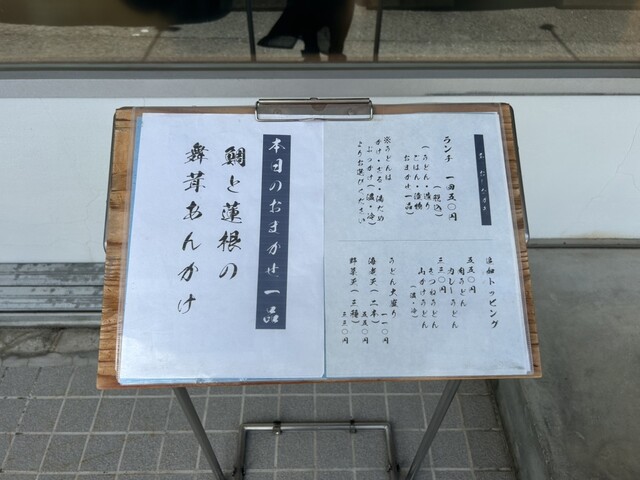 おしながき
ランチ 一四五〇円
(税込)
(うどん・造り
ごはん・漬物
おまかせ一品)
※うどんは
かけ・ざる・湯だめ
ぶっかけ(温・冷)
よりお選びください
追加トッピング
五五〇円
肉うどん
カレーうどん
三三〇円
きつねうどん
山かけうどん
(温・冷)
うどん大盛り
一一〇円
海老天(二本)
五五〇円
野菜天(三種)
三三〇円
本日のおまかせ一品
鯛と蓮根の
舞茸あんかけ